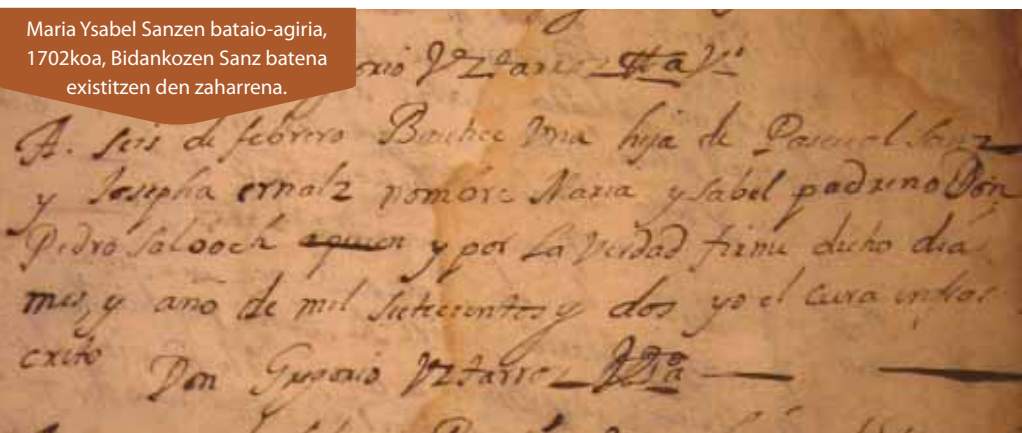 Maria Ysabel Sanzen bataio-agiria,
1702koa, Bidankozen Sanz batena
existitzen den zaharrena.
Vztarrez
A. seis de febrero Bautice Vna hija de Pascual Sanz
y Josepha ernalz nombre Maria ysabel padrino Don
Pedro Salboch y por La Verdad firme dicho dia
mes, y año de mil setecientos y dos yo el cura infras
crito
Don Gregorio Vztarrez